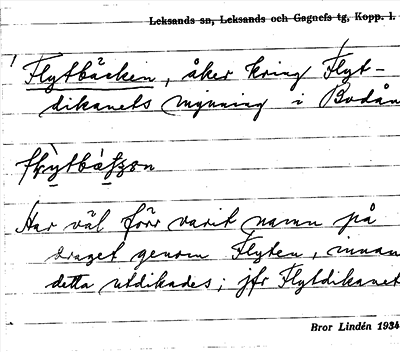 Leksands sn, Leksands och Gagnefs tg, Kopp. l.
Flytbäcken, åker kring Flyt-
dikanets mynning i Bodån
Har väl förr varit namn på
draget genom Flyten, innan
detta utdikades; jfr Flytdikanet
Bror Lindén 1934